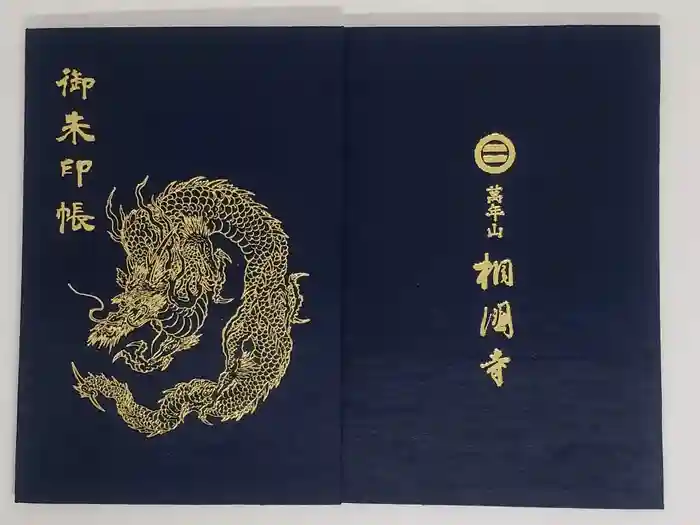 御朱印帳
萬年山
相国寺